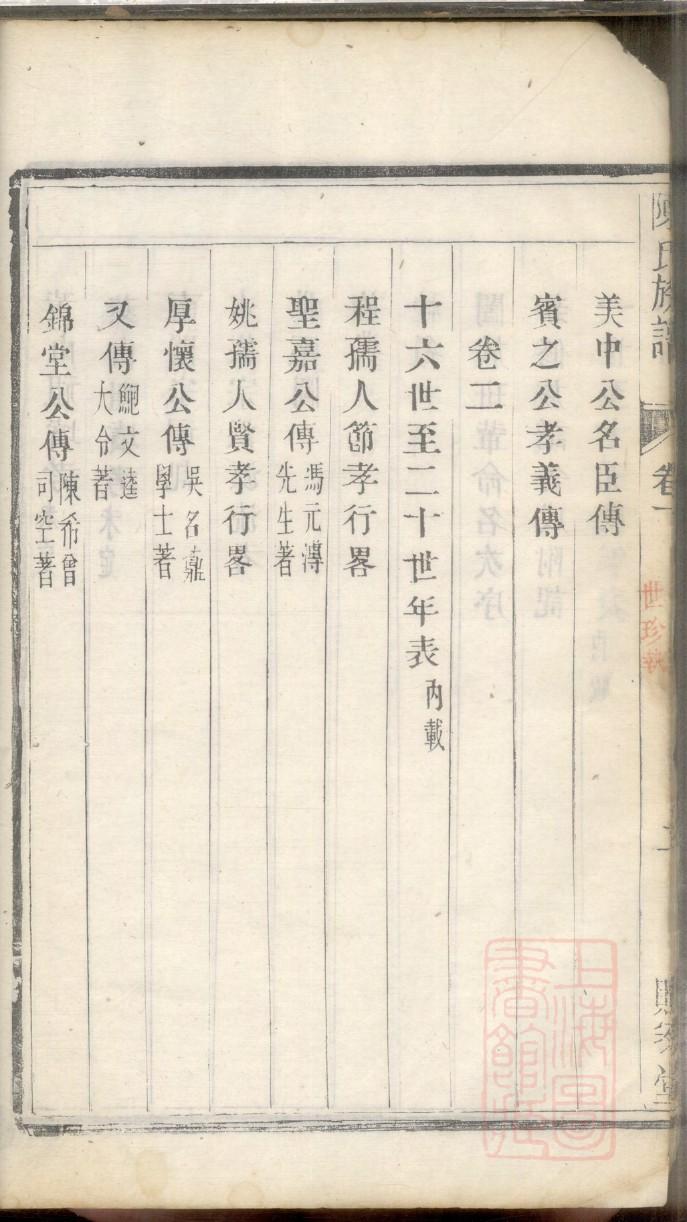 陳氏族譜
卷一
世珍執
二
美中公名臣傳
賓之公孝義傳
卷二
十六世至二十世年表內載
程孺人節孝行畧
聖嘉公傳馮元漙先生著
姚孺人賢孝行畧
厚懷公傳吳名鼒學士著
又傳鮑文逵大令著
錦堂公傳陳希曾司空著
上海圖書館藏